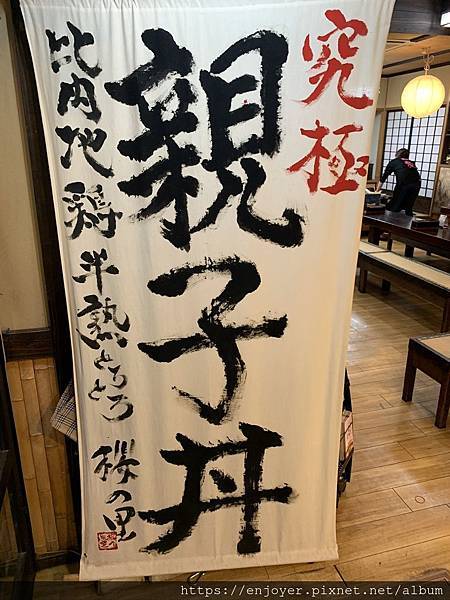 究極
親子丼
比内地鶏半熟とろとろ 秋の里
https://enjoyer.pixnet.net/album